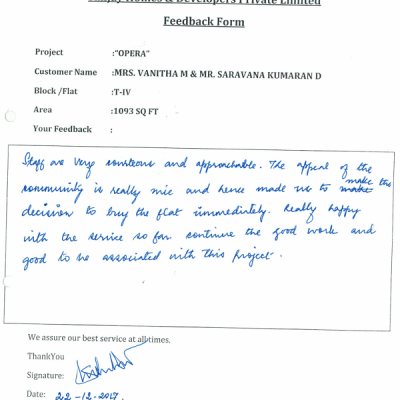 Homes & Developers Private Limited
Feedback Form
Project :"OPERA"
Customer Name :MRS. VANITHA M & MR. SARAVANA KUMARAN D
Block /Flat :T-IV
Area :1093 SQ FT
Your Feedback :
Staff are very courteous and approachable. The appeal of the
community is really nice and hence made us to make make this
decision to buy the flat immediately. Really happy
with the service so far. continue the good work and
good to be associated with this project.
We assure our best service at all times.
ThankYou
Signature:
Date: 22-12-2017.